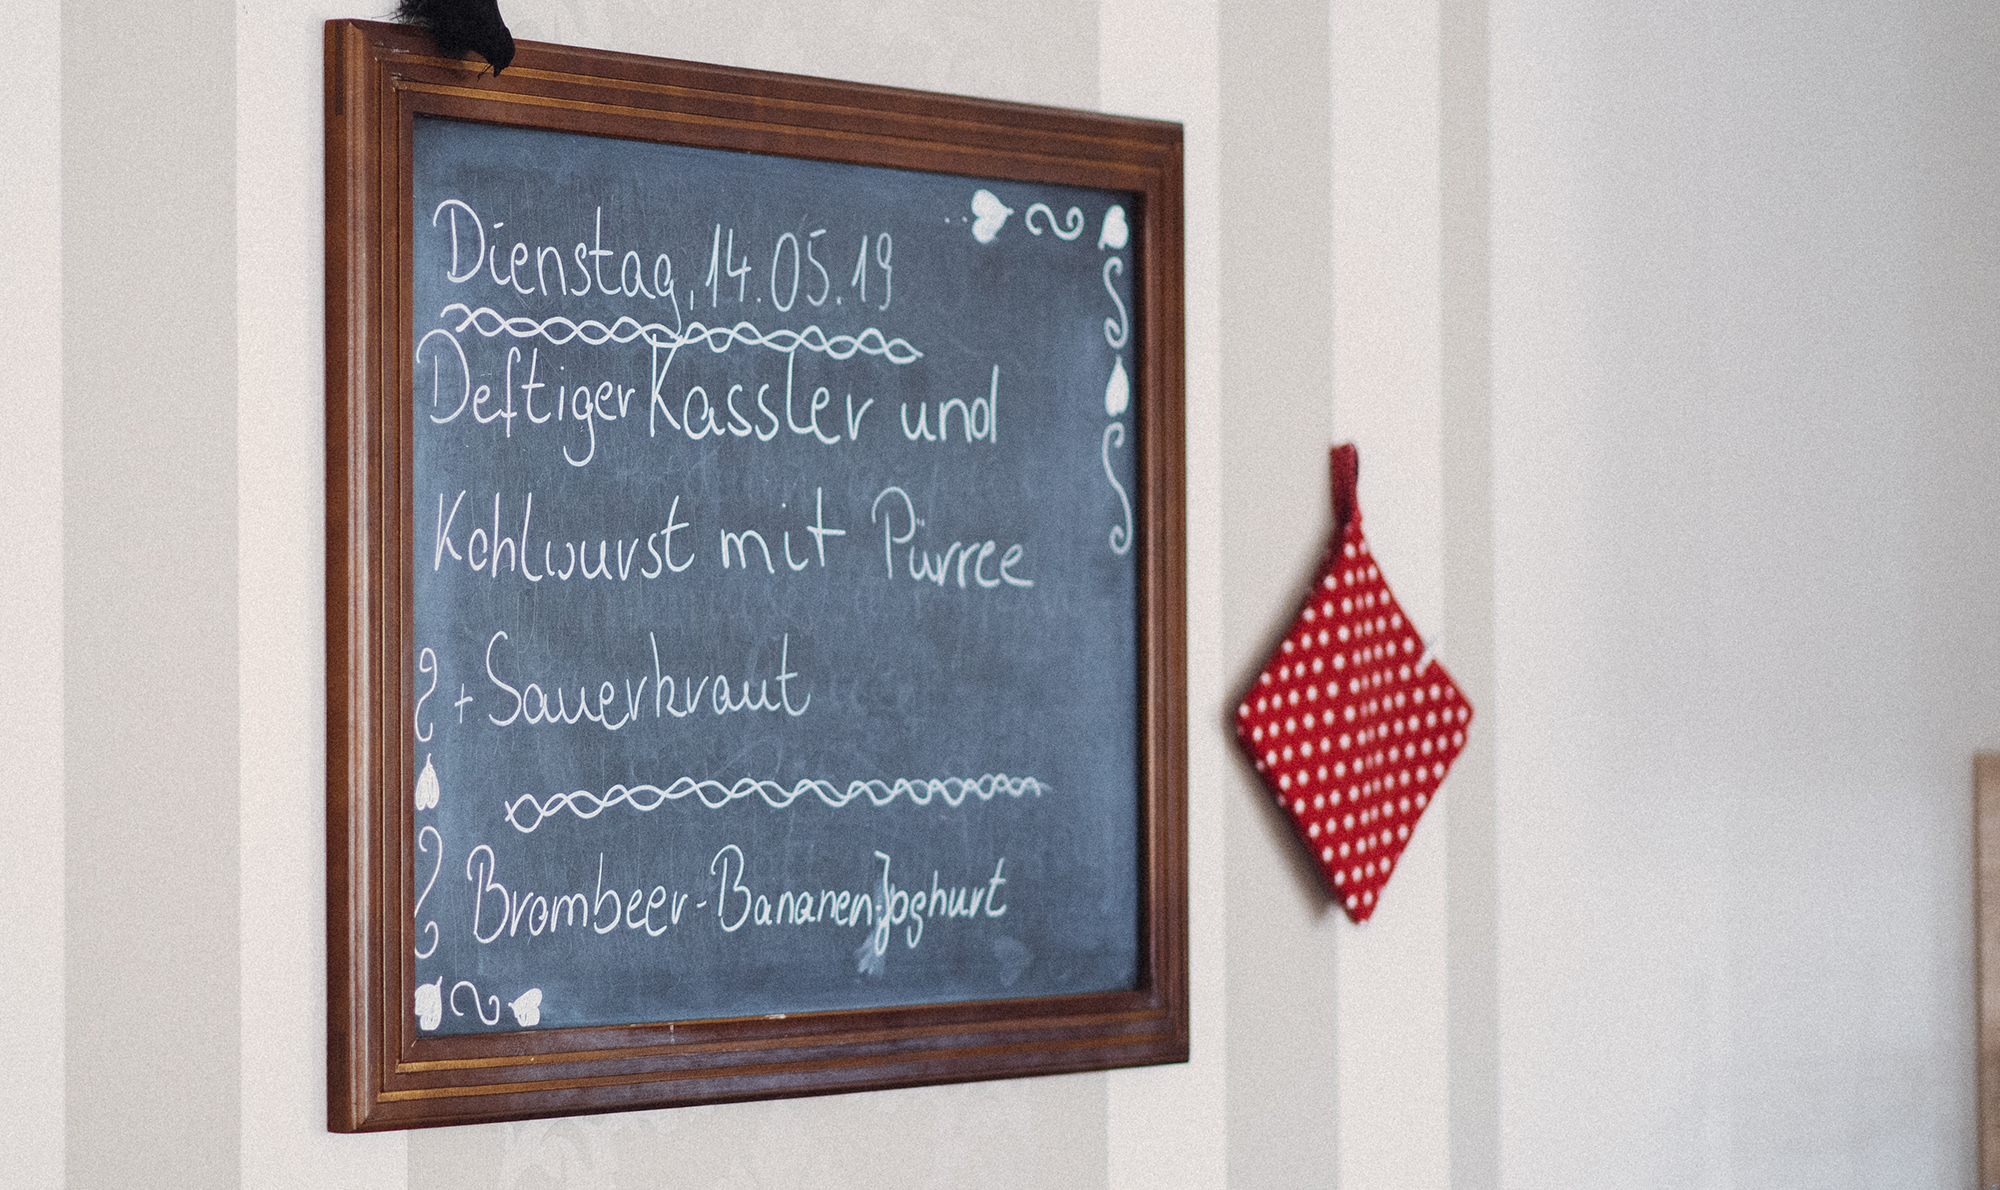 Dienstag, 14.05.19
Deftiger Kassler und
Kohlwurst mit Pürree
+ Sauerkraut
Brombeer-Bananen-Joghurt